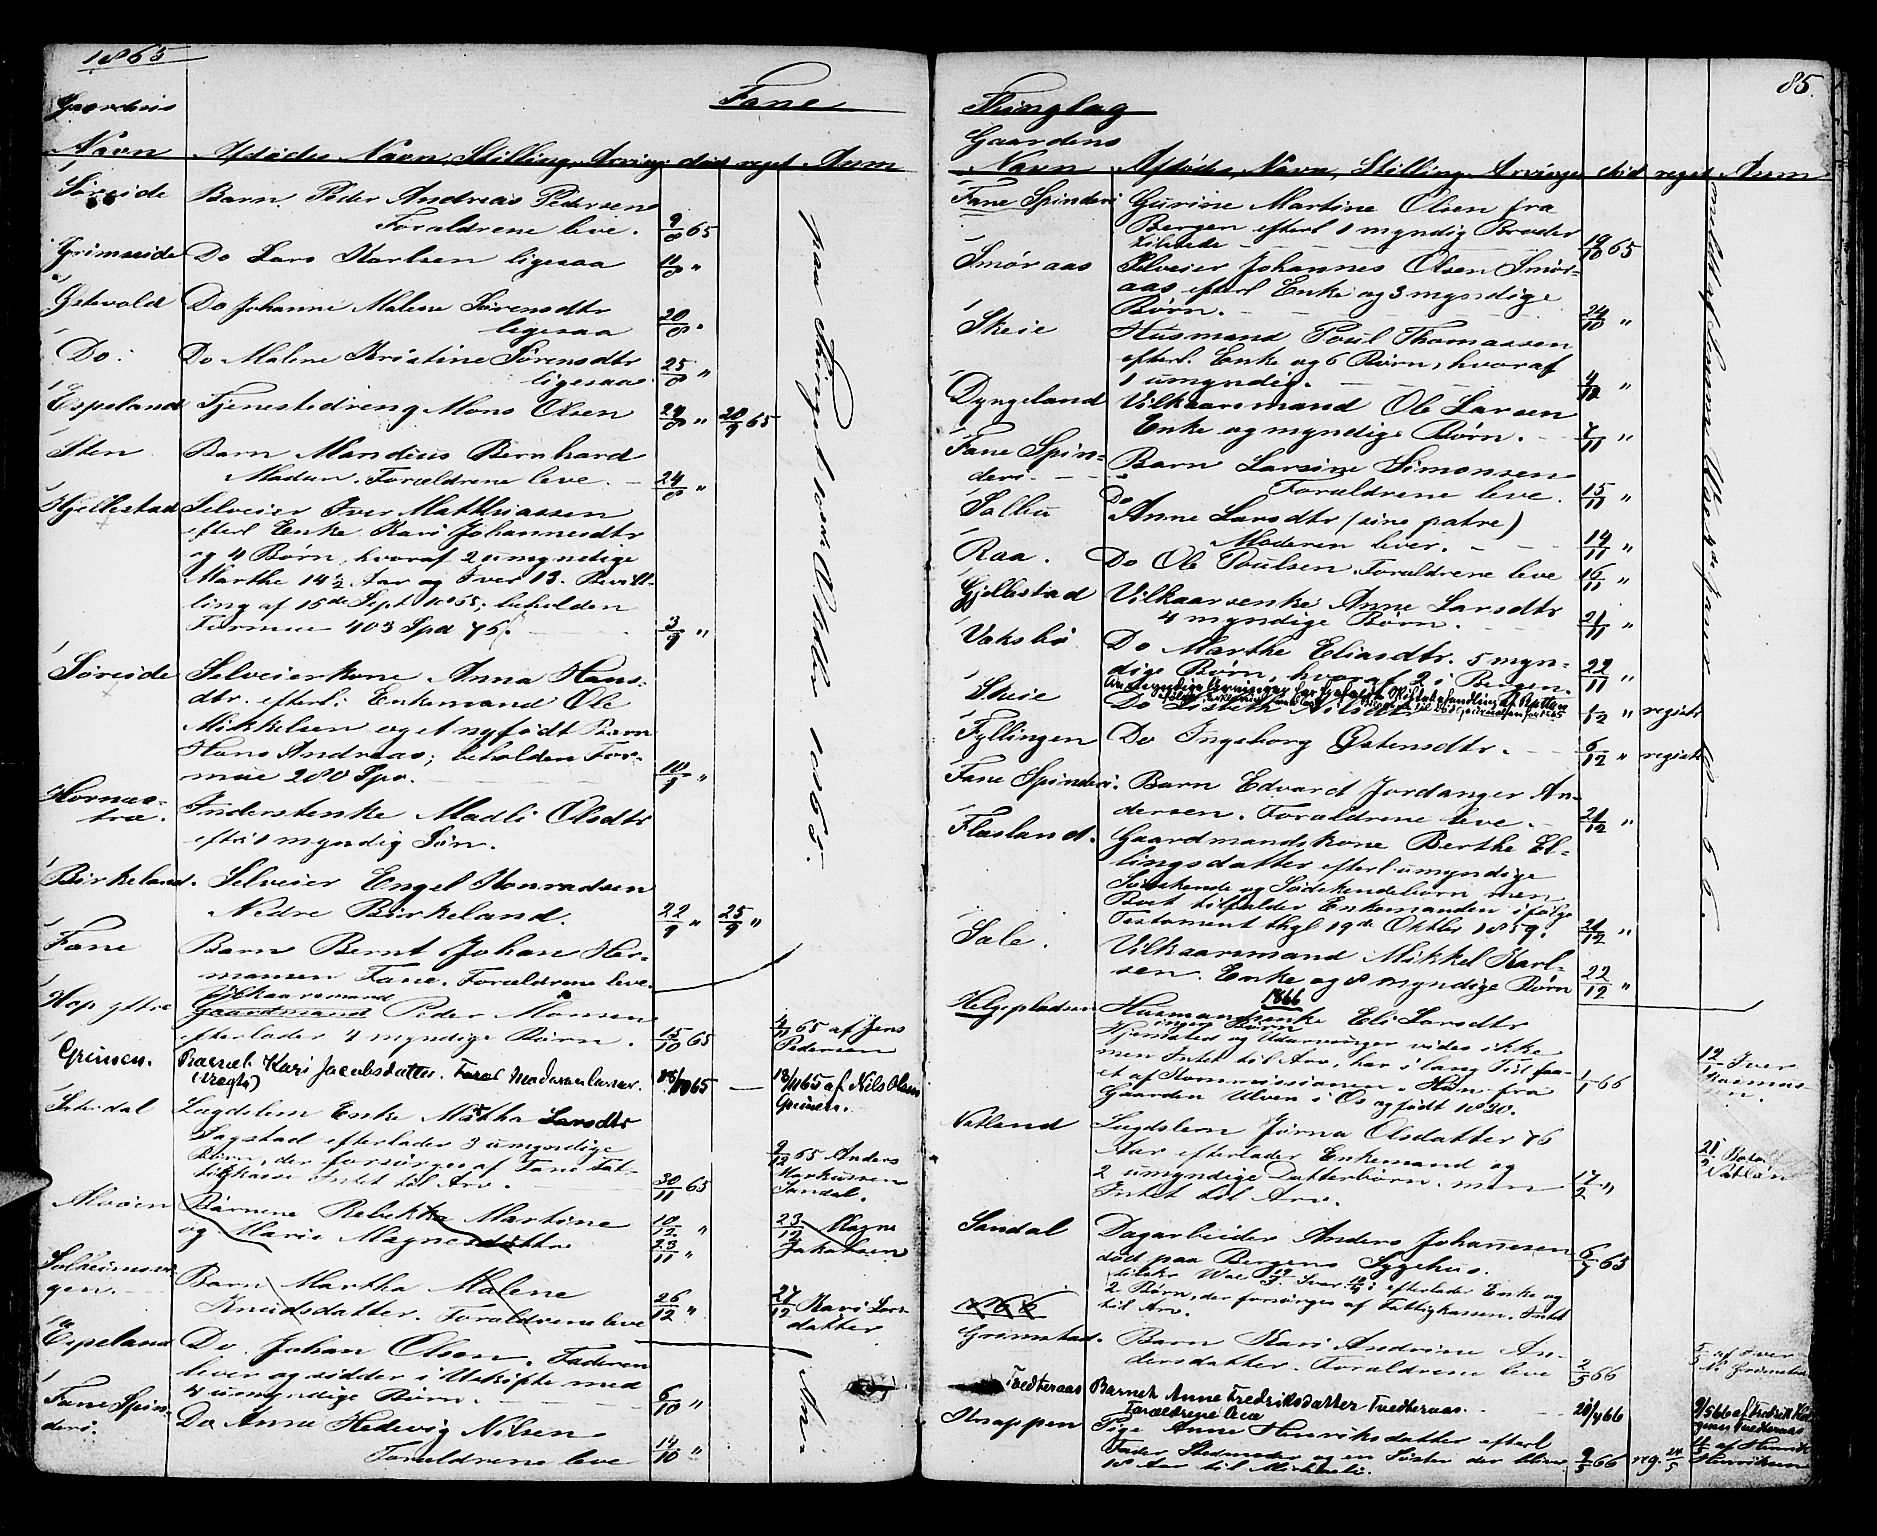 1865
Gaardens
Fane
Navn Afdødes Navn, Stilling, Arving død regst Anm
Søreide Barn Peder Andreas Pedersen
Forældrene leve. 9/8 65
Grimseide Do Lars Karlsen ligesaa 11/8 "
Østevold Do Johanne Malene Sørensdtr
ligesaa 20/8 "
Do. Do Malene Kristine Sørensdtr
ligesaa 25/8 "
Espeland Tjenestedreng Mons Olsen 24/8 " 20/9 65
Sten Barn Mandius Bernhard
Madsen. Forældrene leve. 24/8 "
Hjellestad Selveier Iver Matthiassen
efterl Enke Kari Johannesdtr
og 4 Børn, hvoraf 2 umyndige
Marthe 14 1/2 Aar og Iver 13. Bevil-
ling af 15de Sept 1865; beholden
Formue 403 Spd 76. 3/9 "
Søreide Selveierkone Anna Hans-
dtr. efterl. Enkemand Ole
Mikkelsen og et nyfødt Barn
Hans Andreas; beholden For-
mue 280 Spd. 10/9 "
Hornæs-
træ. Inderstenke Madli Olsdtr
efterl 1 myndig Søn.
Birkeland. Selveier Engel Konradsen
Nedre Birkeland. 22/9 " 25/9 "
Fane Barn Bernt Johan Her-
mansen Fane. Forældrene leve.
Vilkaarsmand
Hop yttre Gaardmand Peder Monsen
efterlader 4 myndige Børn. 15/10 65 4/11 65 af Jens
Pedersen
Grimen. Barnet Kari Jacobsdatter. Moderen lever. 18/10 65 — 13/11 65 af Nils Olsen
(uægte) Grimen.
Lægdslem Enke Martha Larsdtr
Sagstad efterlader 3 umyndige
Børn, der forsørges af Fane Fat-
tikkasse Intet til Arv. 30/11 65 9/12 65 Anders
Markussen
Sandal.
Alvøen Børnene Rebekka Martine 10/12 " 23/12 Magne
og Marie Magnesdøttre 23/11 " Jakobsen
Solheimsvi-
gen. Barn Martha Malene
Knudsdatter. Forældrene leve 26/12 " 27/12 Kari Lars-
datter
Espeland Do. Johan Olsen. Faderen
lever og sidder i Uskifte med
4 umyndige Børn. 6/10 "
Fane Spin-
deri. Do Anne Hedevig Nilsen
Forældrene leve 14/10 "
paa Thinget 1865.
An-
85.
Thinglag
Gaardens
Navn Afdødes Navn, Stilling, Arvinge død regst Anm
Fane Spinderi Gurine Martine Olsen fra
Bergen efterl 1 myndig Broder
tilstede 19/10 65
Smøraas Selveier Johannes Olsen Smør-
aas efterl Enke og 3 myndige
Børn. 24/10 "
Skeie Husmand Poul Thomassen
efterl. Enke og 6 Børn, hvoraf
1 umyndig.
Dyngeland Vilkaarsmand Ole Larsen
Enke og myndige Børn. 7/11 "
Fane Spin-
deri. Barn Larsine Simonsen
Forældrene leve. 15/11 "
Salhu Do Anne Larsdtr (sine patre)
Moderen lever. 14/11 "
Raa. Do Ole Poulsen. Forældrene leve 16/11 "
Gjellestad Vilkaarsenke Anne Larsdtr
4 myndige Børn. 21/11 "
Vaksbø Do Marthe Eliasdtr. 5 myn-
dige Børn, hvoraf 2 i Bergen. 22/11 "
Skeie Do Lisbeth Nilsdtr 1/12 " registr
Fyllingen Do Ingeborg Østensdtr. 6/12 " registr
Fane Spinderi. Barn Edvard Jordanger An-
dersen. Forældrene leve. 21/12 "
Flasland. Gaardmandskone Berthe El-
lingsdatter efterl umyndige
Sødskende og Sødskendebørn men
Boet tilfalder Enkemanden ifølge
Testament thgl 19de Oktbr 1859. 21/12 "
Sale. Vilkaarsmand Mikkel Karl-
sen. Enke og 8 myndige Børn 22/12 "
1866
Helgepladsen Husmandsenke Eli Larsdtr
ingen Børn
Hjemsted og Udarvinger vides ikke
men Intet til Arv, har i lang Tid faa-
et af Kommissionen. Kan fra
Gaarden Ulven i Os og født 1830. 1/1 66 12/1 Iver
Rasmus-
sen.
Natland Lægdslem Jørna Olsdatter 76
Aar efterlader Enkemand og
2 umyndige Datterbørn. men
Intet til Arv. 17/2 "
Sandal Dagarbeider Anders Johannesen
død paa Bergens Sygehus. 6/7 63
efterlader Enke og
2 Børn, der forsørges af Fattigkassen, Intet
til Arv.
1866
Grimstad. Barn Kari Andrine An-
dersdatter. Forældrene leve 2/3 66 af Iver
Grimstad
Tvedteraas Barnet Anne Fredriksdatter Tvedteraas. 28/4 66 9/5 66 af Fredrik
Forældrene leve Tvedteraas
Knappen Pige Anne Henriksdatter efterl
Fader Stedmoder og en Søster der bliver 9/5 66 reg. 24/5 af Henrik
18 Aar til Mikkeli. Henriksen